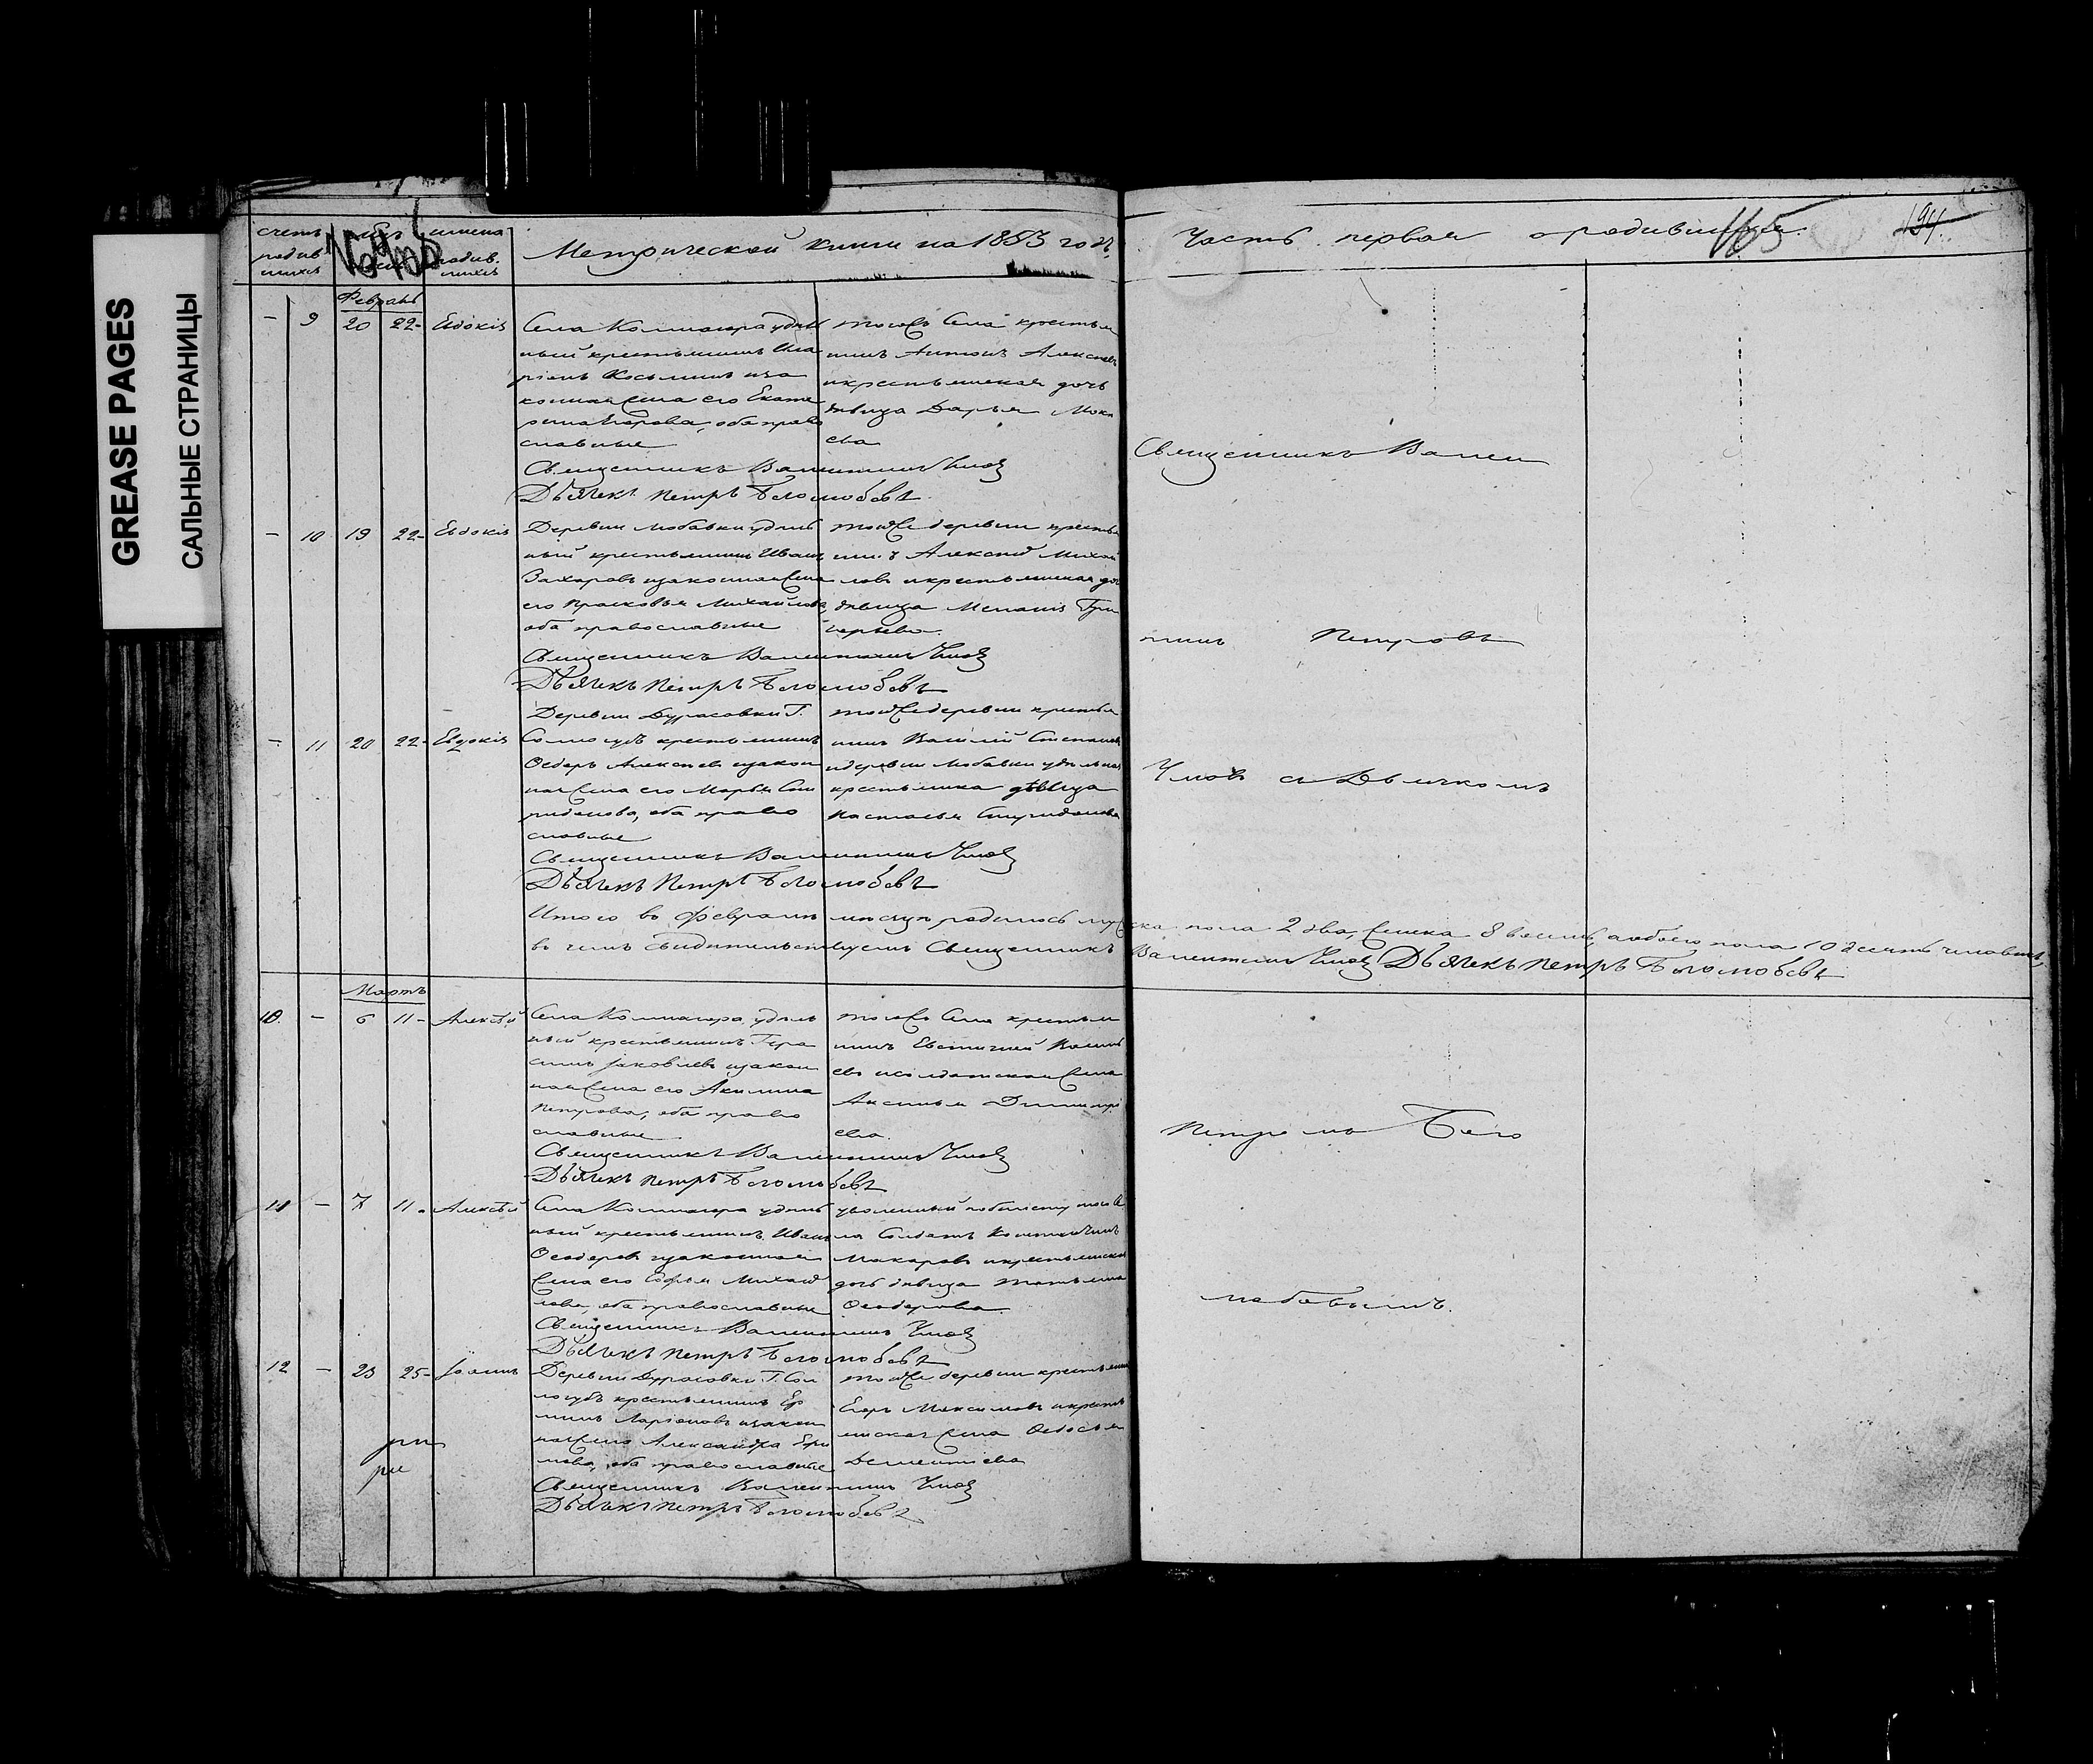 GREASE PAGES
САЛЬНЫЕ СТРАНИЦЫ
счетъ родив шихся
имена родив. шихся
Метрической книги на 1853 годъ
Часть первая о родившихся.
165
194.
Февраль
— 9 20 22 - Евдокія
Села
ный крестьянинъ Ила
ріонъ Косьминъ и за
конная жена его Екате
рина Егорова, оба право
славные
тогожъ села крестья
нинъ Антонъ Алексѣевъ
и крестьянская дочь
дѣвица Дарья
ева
Священникъ Валентинъ
Дьячекъ Петръ Боголюбовъ
— 10 19 22 - Евдокія
Деревни Любавки удѣль
ный крестьянинъ Иванъ
Захаровъ и законная жена
его Прасковья Михайлова,
оба православные
тойже деревни крестья
нинъ Михай
ловъ и крестьянская до
дѣвица Меланія Гри
горьева.
Священникъ Валентинъ
Дьячекъ Петръ Боголюбовъ
— 11 20 22 - Евдокія
Деревни Дурасовки Г.
Сологубъ крестьянинъ
Ѳеодоръ Алексѣевъ и закон
ная жена его Марья Спи
ридонова, оба право
славные
тойже деревни крестья
нинъ Василій Степановъ
и деревни Любавки удѣльная
крестьянка дѣвица
Настасья Спиридонова
Священникъ Валентинъ
Дьячекъ Петръ Боголюбовъ
Итого въ Февралѣ мѣсяцѣ родилось мужска пола 2 два, женска 8 восемь, а обоего пола 10 десять человѣкъ,
въ чемъ свидѣтельствуемъ Священникъ Валентинъ Дьячекъ Петръ Боголюбовъ
Мартъ
10. — 6 11 - Алексѣй
Села удѣль
ный крестьянинъ Гера
симъ Іаковлевъ и закон
ная жена его Акилина
Петрова, оба право
славные
тогожъ села крестья
нинъ Евстигней Василь
евъ и солдатская жена
Аксинья Димитрі
ева.
Священникъ Валентинъ
Дьячекъ Петръ Боголюбовъ
11 — 7 11 - Алексѣй
Села удѣль
ный крестьянинъ Иванъ
Ѳеодоровъ и законная
жена его Софья Михай
лова, оба православные
уволенный по билету того се
ла солдатъ Константинъ
Макаровъ и крестьянская
дочь дѣвица Татьяна
Ѳеодорова.
Священникъ Валентинъ
Дьячекъ Петръ Боголюбовъ
12 — 23 25 - Іоаннъ
Деревни Дурасовки Г. Сол
логубъ крестьянинъ Ер
Ларіоновъ и закон
ная жена Александра
оба православные
тойже деревни крестьянинъ
Егоръ Максимовъ и крестья
нская жена Ѳедосья
Дементіева
Священникъ Валентинъ
Дьячекъ Петръ Боголюбовъ
Священникъ Вален
тинъ Петровъ
съ Дьячкомъ
Петромъ Бого
любовымъ.